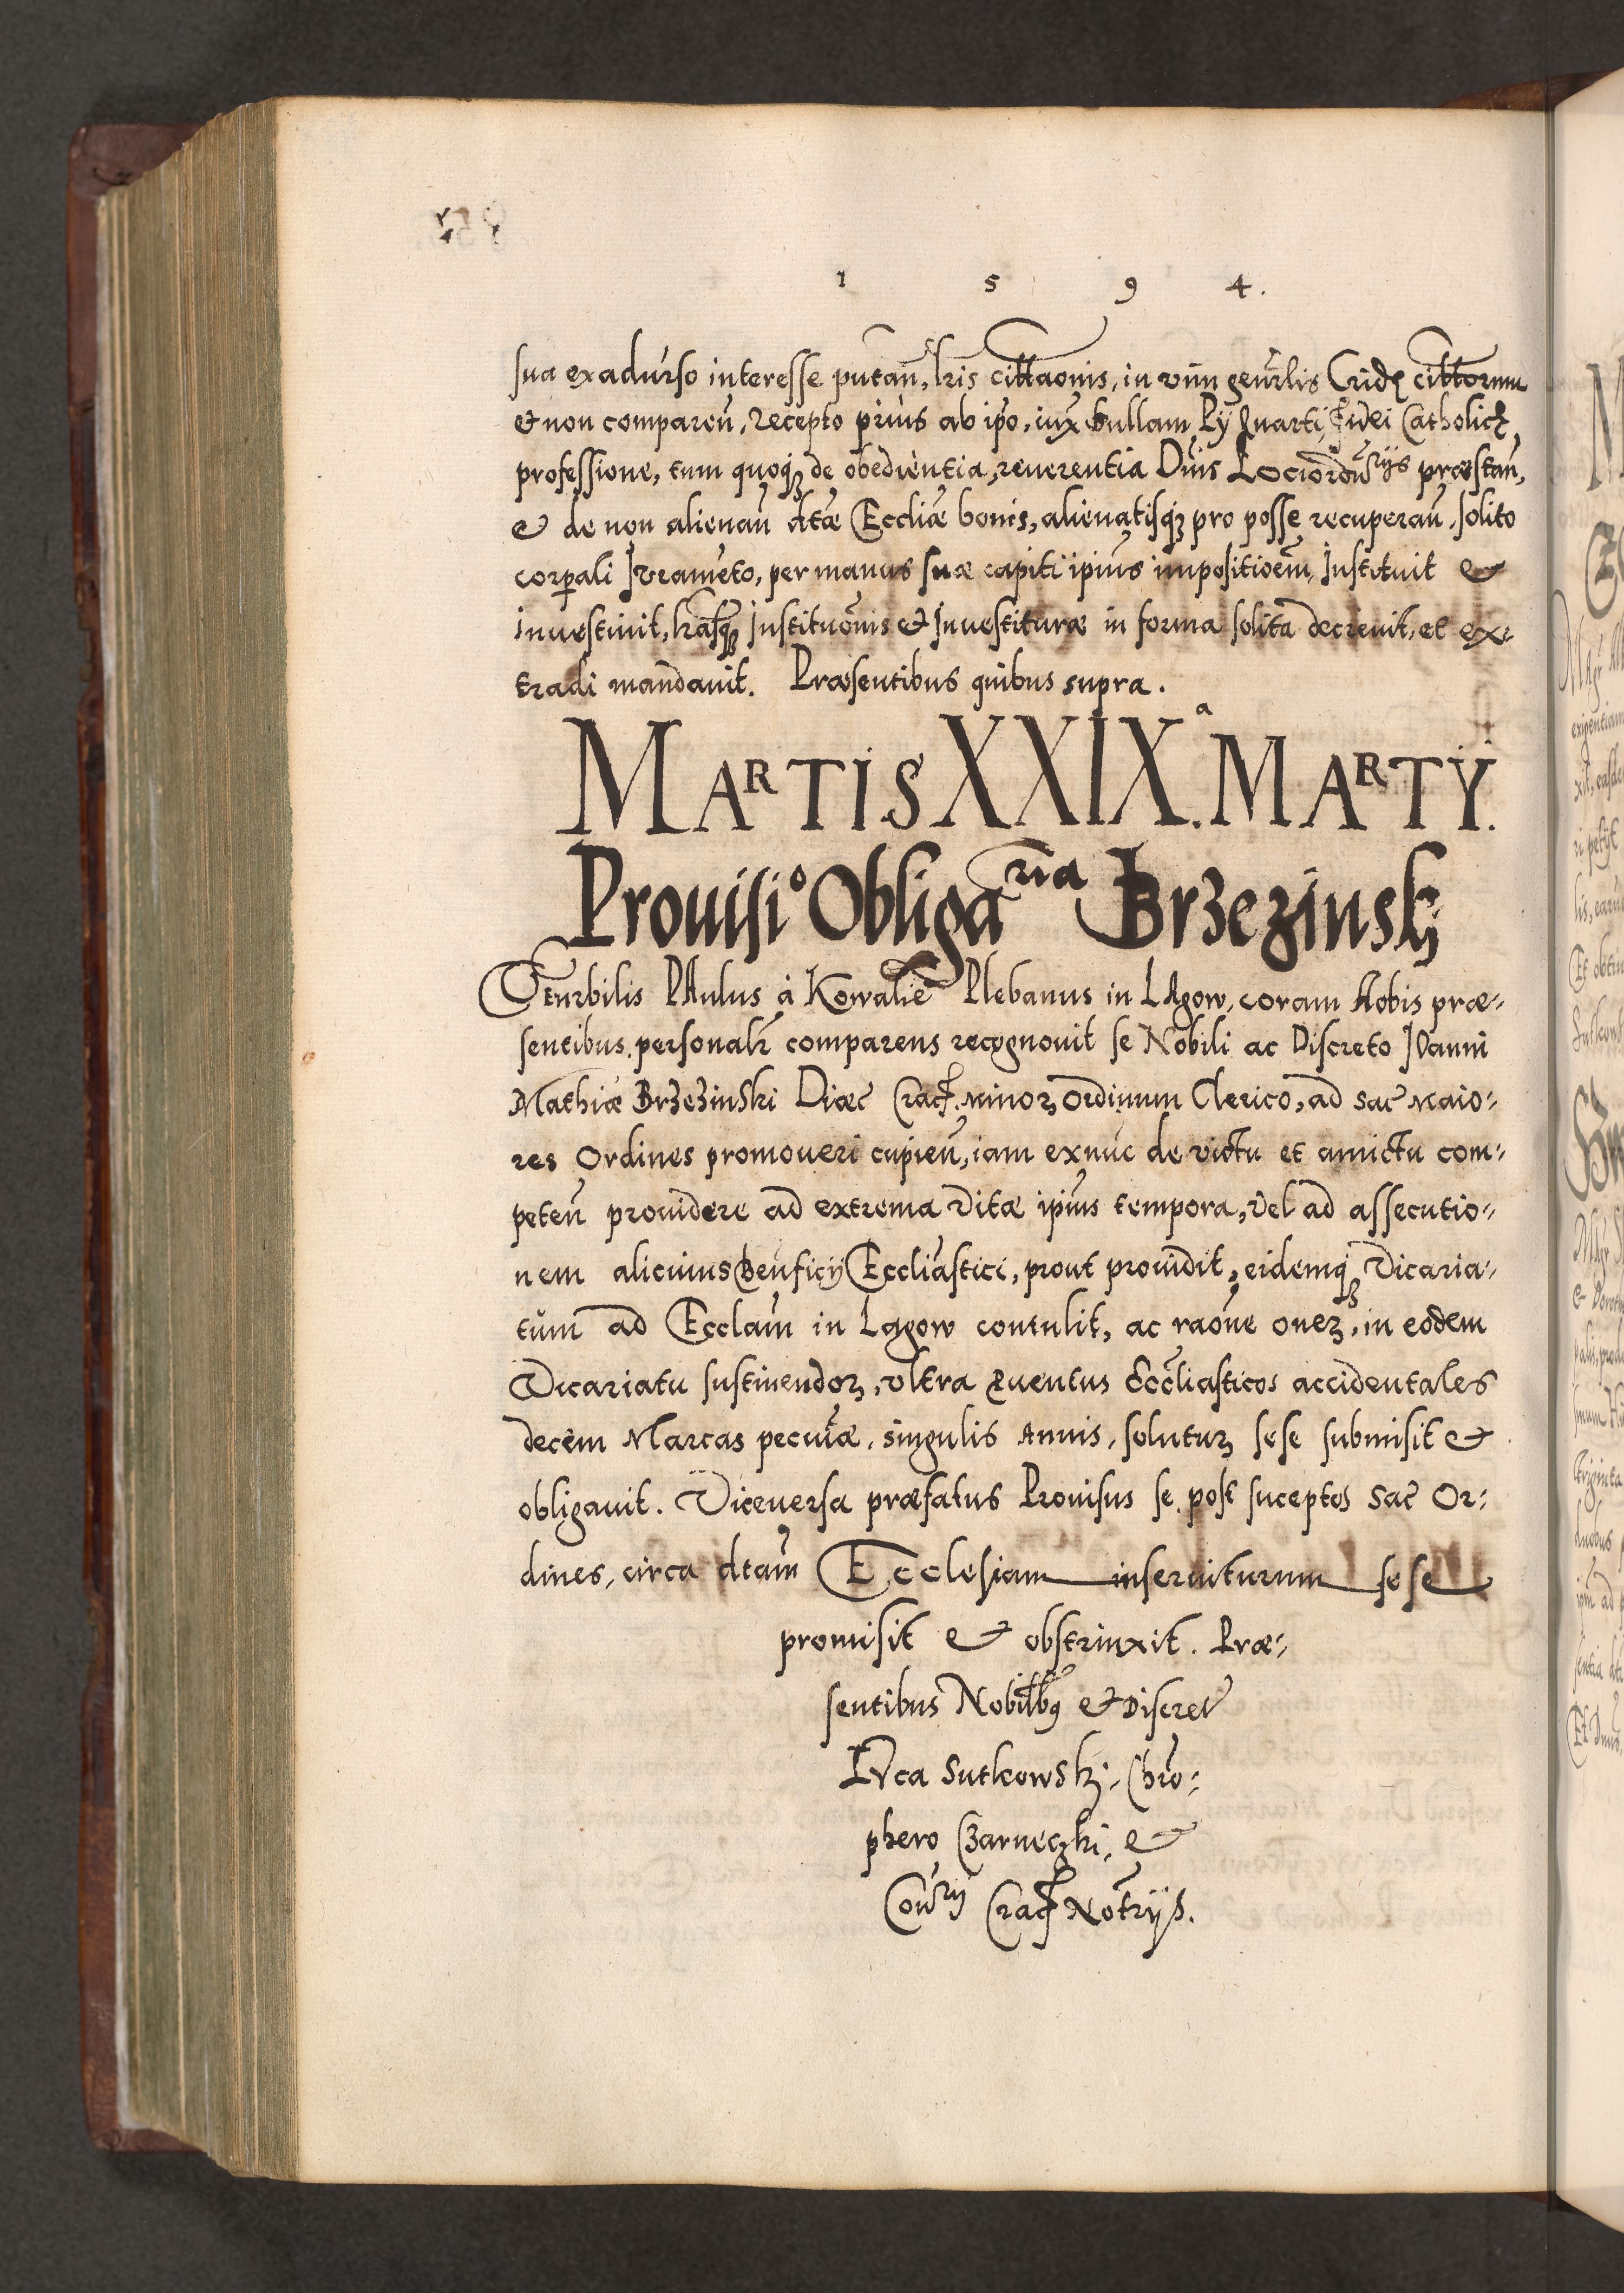 1 5 9 4.
sua exadurso interesse putan̄, lr̄is citt̄aonis, in vim genr̄lis Cridę citt̄orum
et non comparen̄, recepto prius ab ip̄o, iux̄ bullam Py Quarti, fidei Catholicę
professione, tum quoqȝ de obedientia, reuerentia Dn̄is Lociord͞riis præstan̄,
& de non alienan̄ dtæ Eccl̄iæ bonis, alienatisqȝ pro posse recuperan̄, solito
corꝑali Iuramēto, per manus suæ capiti ip̄ius impositioēm, Instituit &
inuestiuit, lr̄asqȝ Institūonis et Inuestituræ in forma solita decreuit, et ex-
tradi mandauit. Præsentibus quibus supra.
MARTIS XXIXª. MARTY.
Prouisio Obligaria Brzezinskj
Venr̄bilis PAulus à Kowalie Plebanus in LAgow, coram Nobis præ-
sentibus personalr̄ comparens recognouit se Nobili ac Discreto IOanni
Mathiæ Brzezinski Diœc̄ Crac̄. Minorꝝ Ordinum Clerico, ad sac̄ Maio-
res Ordines promoueri cupien̄, iam exnūc de victu et amictu com-
peten̄ prouidere ad extrema vitæ ip̄ius tempora, vel ad assecutio-
nem alicuius Ben̄ficij Eccl̄iastici, prout prouidit, eidemqȝ Vicaria-
tum ad Eccl̄am in Lagow contulit, ac rāone onerꝝ, in eodem
Vicariatu sustinendorꝝ, vltra ꝓuentus Eccl̄iasticos accidentales
decem Marcas pecūiæ, singulis Annis, soluturꝝ sese submisit &
obligauit. Viceuersa præfatus Prouisus se post suceptos sac̄ Or-
dines, circa dtam̄ Ecclesiam inseruiturum sese
promisit & obstrinxit. Præ-
sentibus Nobilibꝰ & Discret̄
LVca Sutkowskj, Chr̄o-
phero Czarneczki, &
Con̄rij Crac̄ Not̄rijs.